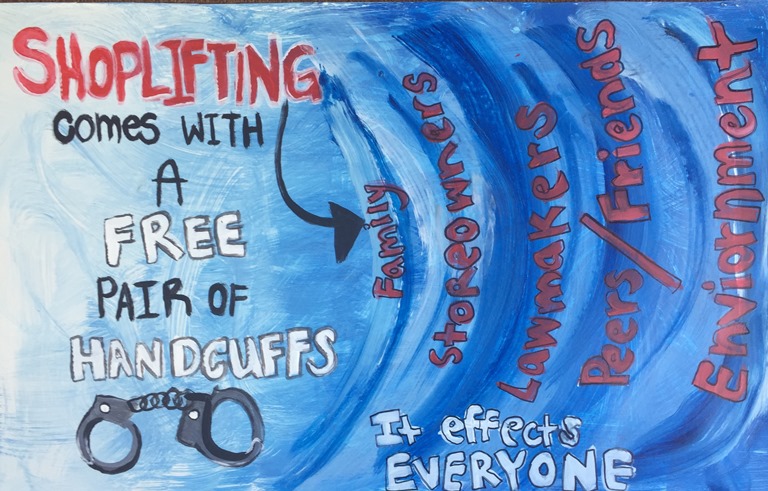 SHOPLIFTING
comes WITH
A
FREE
PAIR OF
HANDCUFFS
Family
Storeowners
Lawmakers
Peers/Friends
Enviornment
It effects
EVERYONE